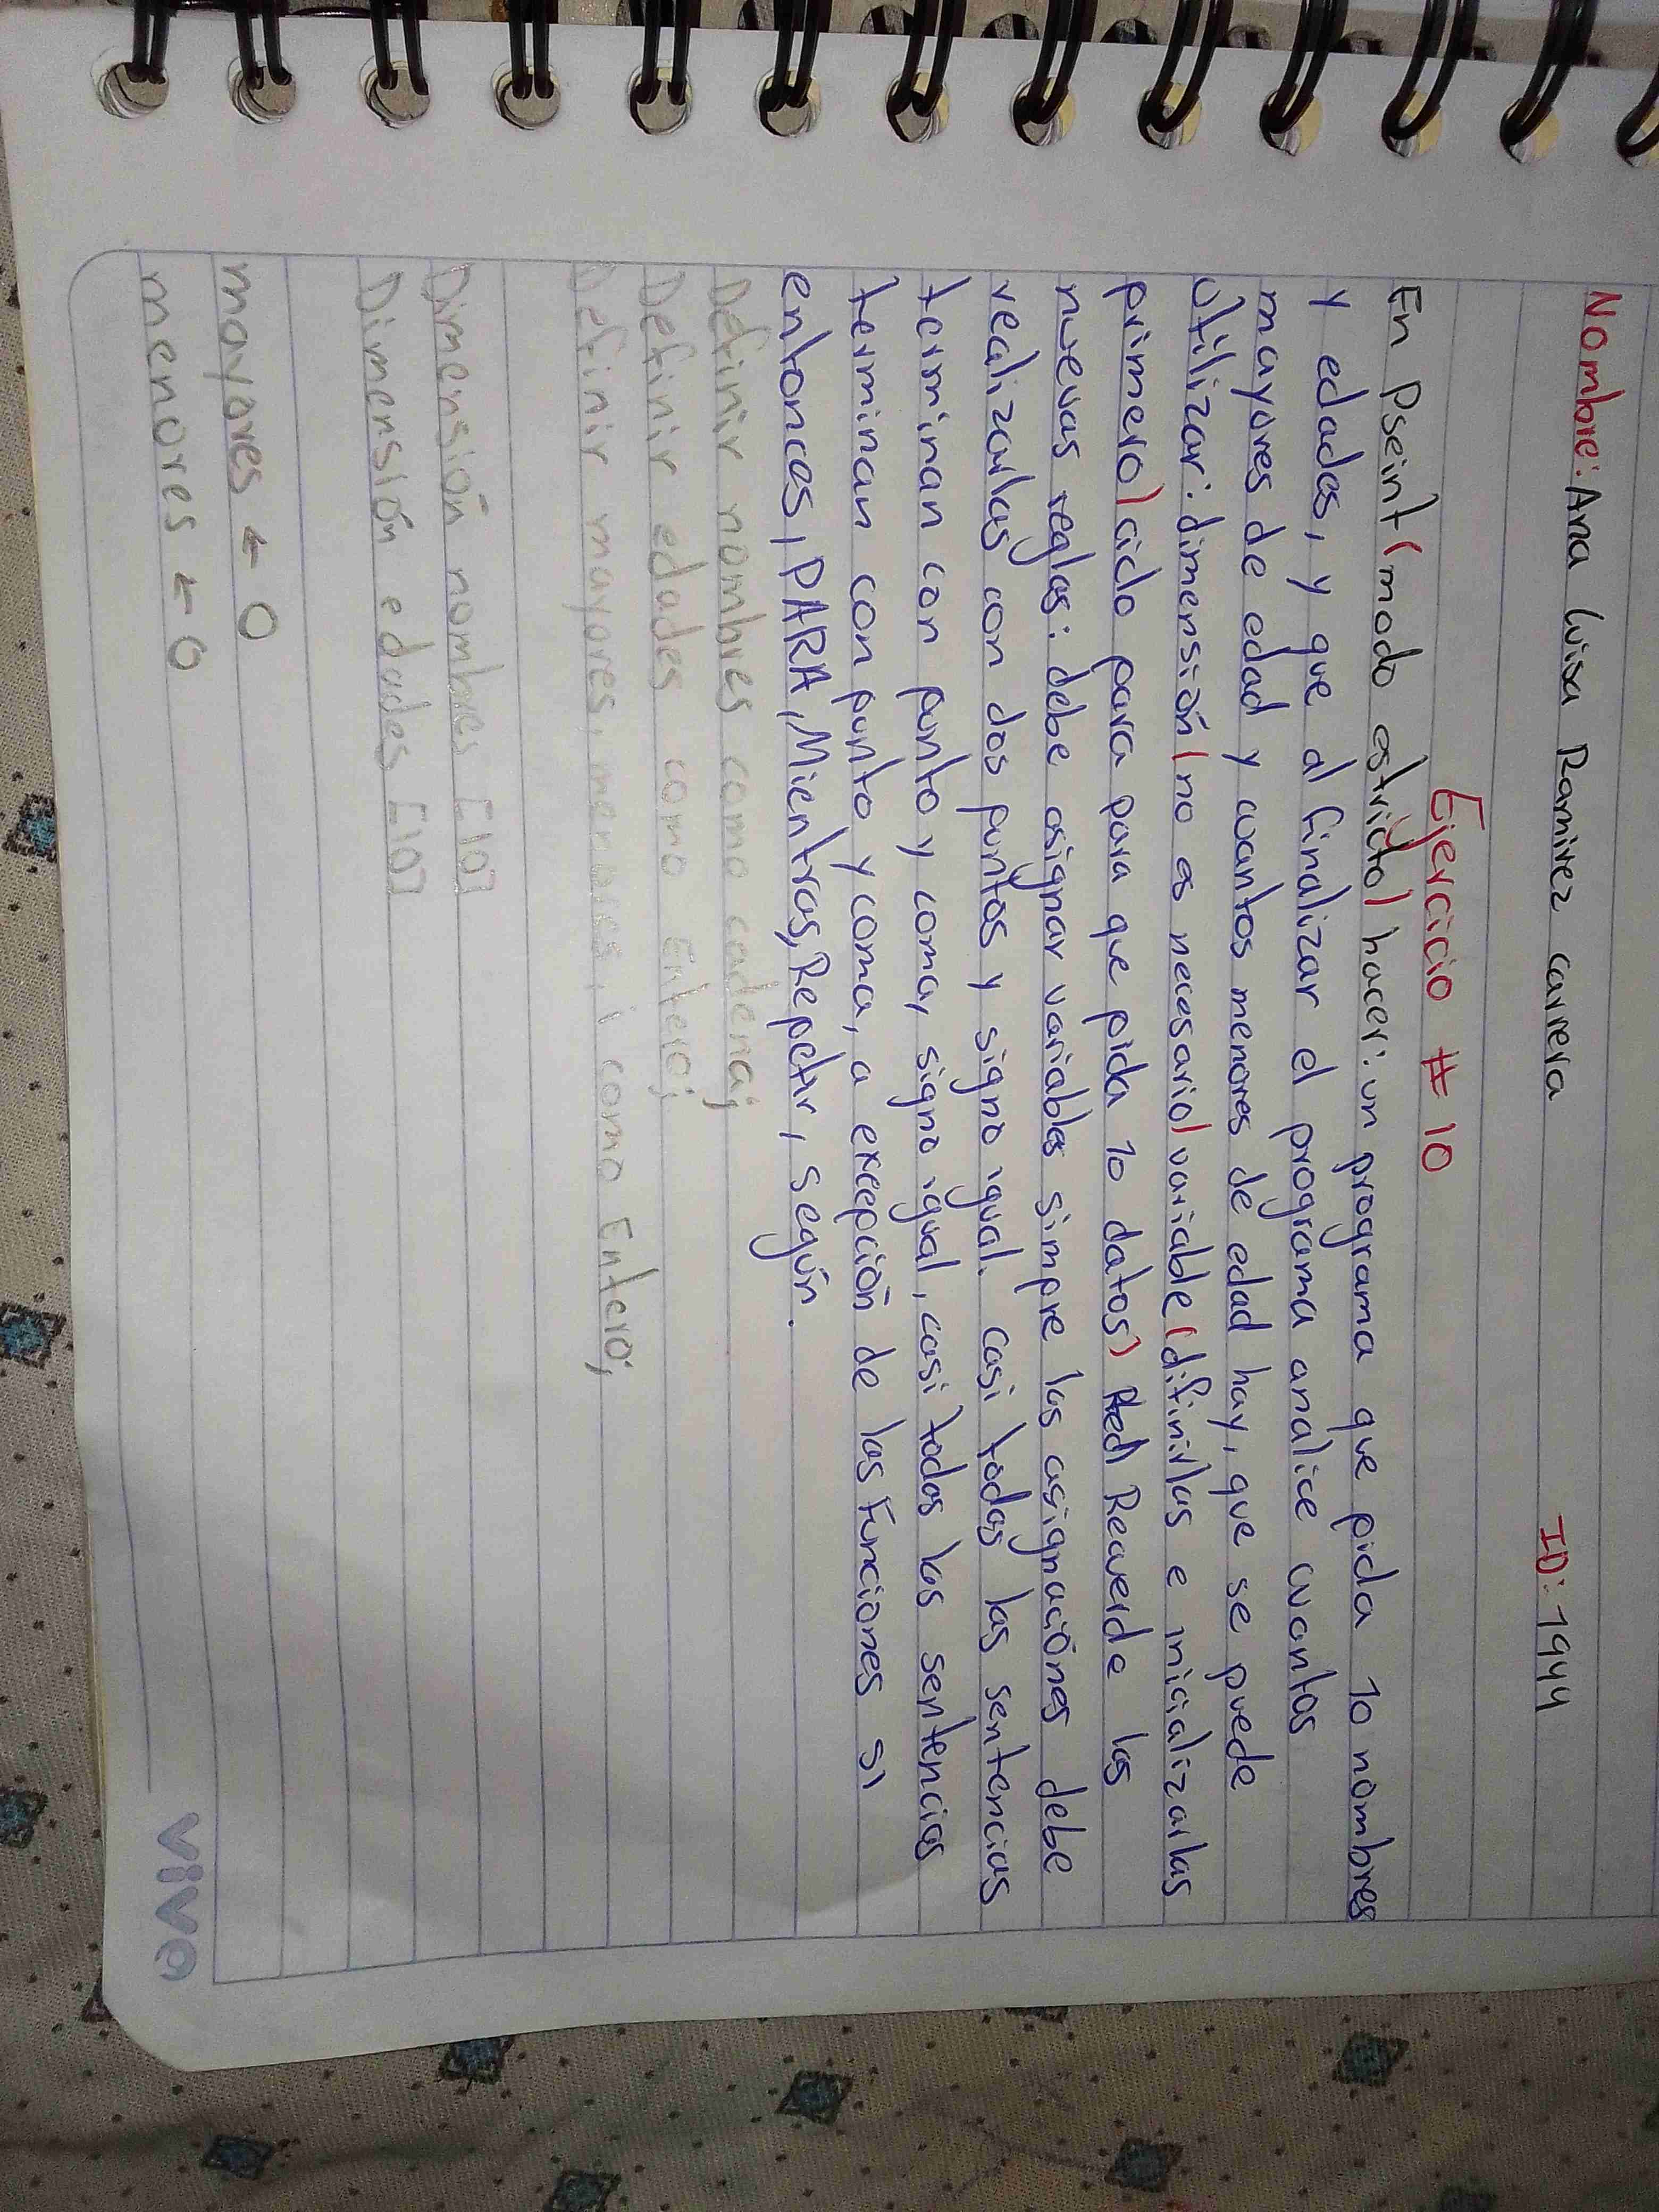 Nombre: Ana Luisa Ramirez carrera ID: 1944
Ejercicio # 10
En Pseint (modo estricto) hacer: un programa que pida 10 nombres
y edades, y que al finalizar el programa analice cuantos
mayores de edad y cuantos menores de edad hay, que se puede
utilizar: dimensión (no es necesario) variable (difinirlas e inicializarlas
primero) ciclo para para que pida 10 datos) Recuerde las
nuevas reglas: debe asignar variables simpre las asignaciónes debe
realizarlas con dos puntos y signo igual. casi todas las sentencias
terminan con punto y coma, signo igual, casi todas las sentencias
terminan con punto y coma, a excepción de las Funciones si
entonces, PARA, Mientras, Repetir, según.
Definir nombres como cadena;
Definir edades como Entero;
Definir mayores, menores, i como Entero;
Dimensión nombres [10]
Dimensión edades [10]
mayores ← 0
menores ← 0
vivo